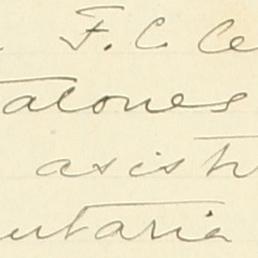 F. C. Ce
atones
asist
utaria